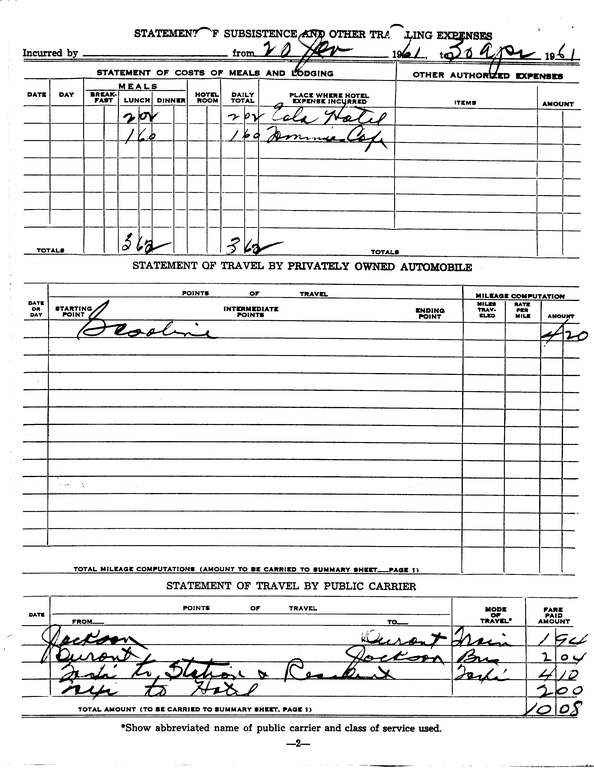 STATEMENT OF SUBSISTENCE AND OTHER TRA LING EXPENSES
Incurred by from 20 Jan 1961, to 30 apr 1961
STATEMENT OF COSTS OF MEALS AND LODGING OTHER AUTHORIZED EXPENSES
DATE DAY MEALS BREAK-FAST LUNCH DINNER HOTEL ROOM DAILY TOTAL PLACE WHERE HOTEL EXPENSE INCURRED ITEMS AMOUNT
202 202 Hotel
160 160
TOTALS 362 362 TOTALS
STATEMENT OF TRAVEL BY PRIVATELY OWNED AUTOMOBILE
DATE OR DAY POINTS OF TRAVEL MILEAGE COMPUTATION
STARTING POINT INTERMEDIATE POINTS ENDING POINT MILES TRAV-ELED RATE PER MILE AMOUNT
4 20
TOTAL MILEAGE COMPUTATIONS (AMOUNT TO BE CARRIED TO SUMMARY SHEET—PAGE 1)
STATEMENT OF TRAVEL BY PUBLIC CARRIER
DATE POINTS OF TRAVEL MODE OF TRAVEL* FARE PAID AMOUNT
FROM TO
Jackson Durant Train 1 94
Durant Jackson Bus 2 04
Taxi to Station & Taxi 4 10
Taxi to Hotel 2 00
TOTAL AMOUNT (TO BE CARRIED TO SUMMARY SHEET. PAGE 1) 10 08
*Show abbreviated name of public carrier and class of service used.
—2—